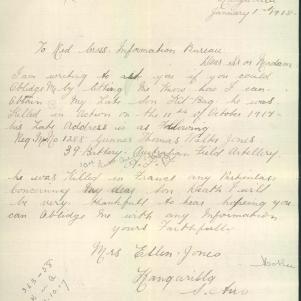 January 1st 1918
To Red Cross Information Bureau
Dear Sir or Madam
I am writing to ask you if you could
Oblige Me by letting Me know how I can
Obtain My late Son Kit-Bag he was
Killed in Action on the 11th of October 1917
his late Address is as following
Reg No 1288 Gunner Thomas Walter Jones
39 Battery Australian Field Artillery
he was Killed in France any Particulars
Concerning my dear Son Death I will
be very thankfull to hear hopeing you
can Oblidge me with any Information
yours Faithfully
Mrs Ellen Jones
S. Aus